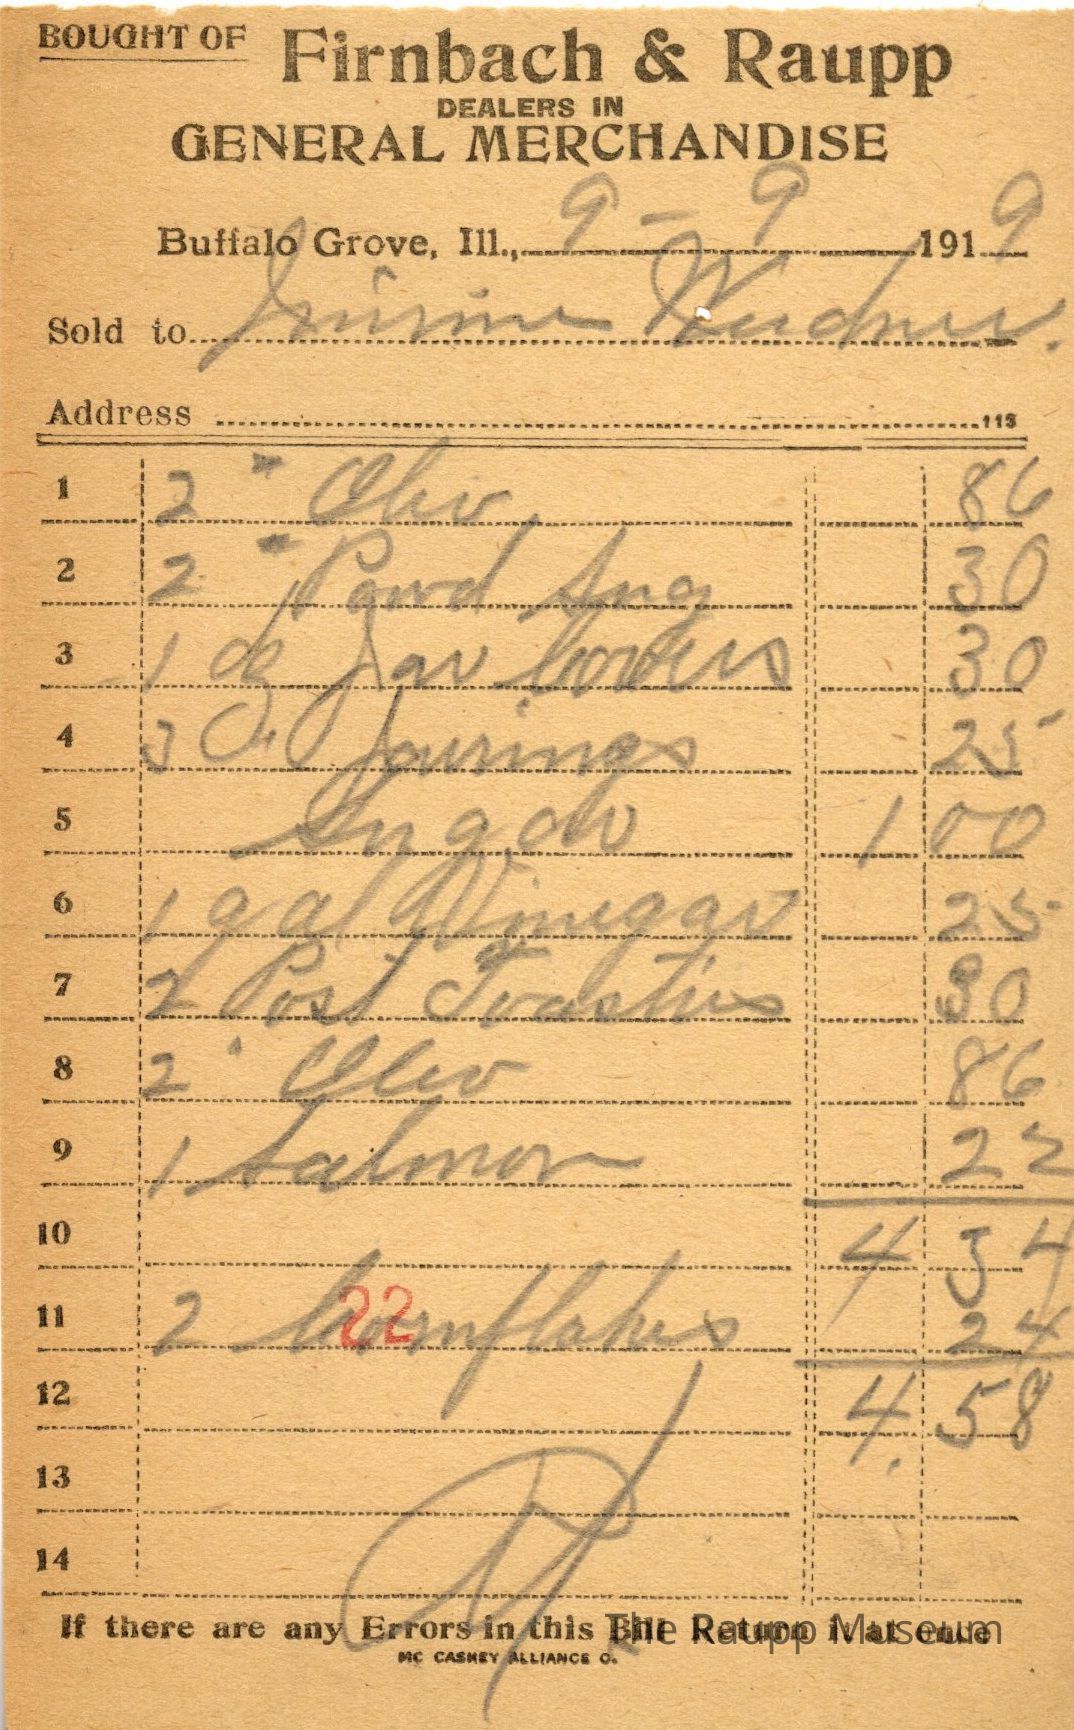 BOUGHT OF Firnbach & Raupp
DEALERS IN
GENERAL MERCHANDISE
Buffalo Grove, Ill., 9 - 9 1919
Sold to
Address 115
1 2 " Oleo 86
2 2 " Powd Sug 30
3 1 dz Jar covers 30
4 3 25
5 Sugar 1 00
6 1 gal Vinegar 25
7 2 Post Toasties 30
8 2 " Oleo 86
9 1 Salmon 22
10 4 34
11 2 Cornflakes 24
22
12 4. 58
13
14
If there are any Errors in this Bill Return it at once
The Raupp Museum
MC CASKEY ALLIANCE O.